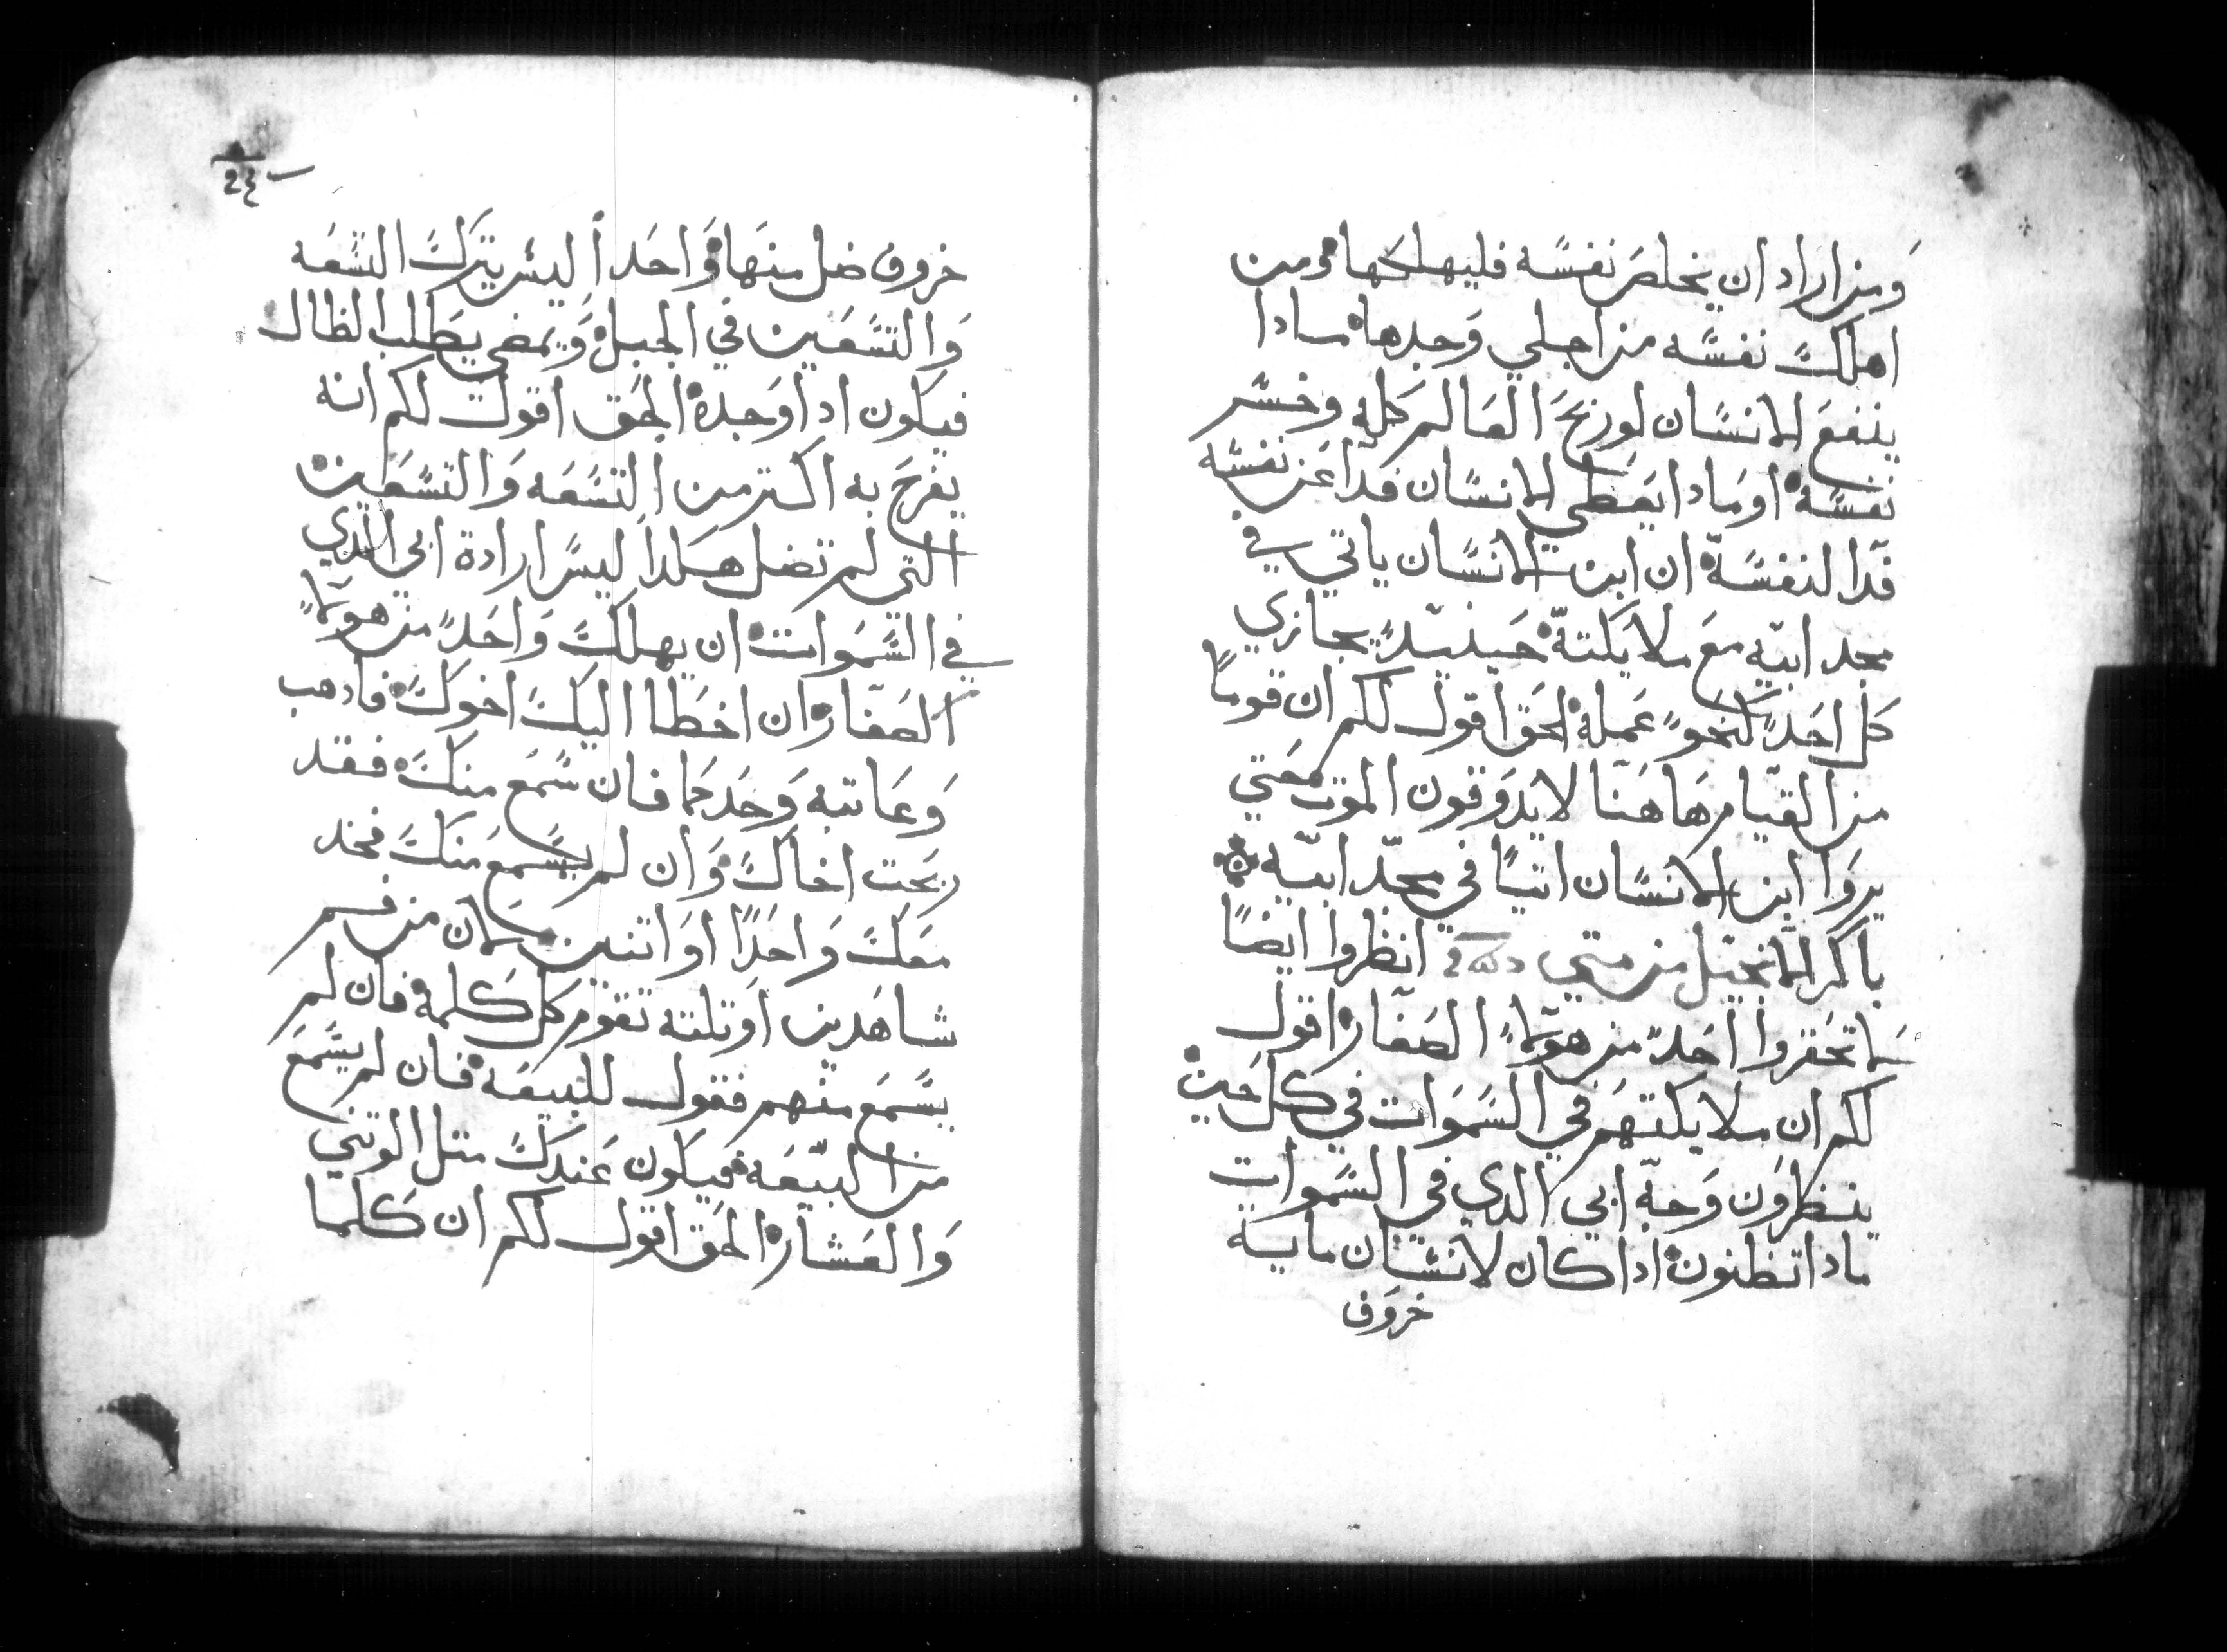 ومن اراد ان يخلص نفسه فليهلكها ومن
اهلك نفسه من اجلي وجدها مادا
ينفع الانسان لو ربح العالم كله وخسر
نفسه او مادا يعطي الانسان فدآ عن نفسه
فدآ لنفسه ان ابن الانسان ياتي في
مجد ابيه مع ملايكته حينيدٍ يجازي
كل احدٍ كنحو عمله الحق اقول لكم ان قوماً
من القيام هاهنا لا يدوقون الموت حتي
يروا ابن الانسان اتياً في مجد ابيه
باكر الانجيل من متي انظروا ايضاً
لا تحقروا احد من هولاء الصغار اقول
لكم ان ملايكتهم في السموات في كل حين
ينظرون وجه ابي الدي في السموات
مادا تظنون ادا كان لانسان مايه
خروف
خروف ضل منها واحداً اليس يترك التسعه
والتسعين في الجبل ويمضي يطلب الظال
فيكون ادا وجده الحق اقول لكم انه
يفرح به اكتر من التسعه والتسعين
التي لم تضل هكدا ليس ارادة ابي الدي
في السموات ان يهلك واحدٍ من هولاء
الصغار وان اخطا اليك اخوك فادهب
وعاتبه وحدكما فان سمع منك فقد
ربحت اخاك وان لم يسمع منك فخد
معك واحداً او اتنين لان من فم
شاهدين او تلته تقوم كل كلمة فان لم
يسمع منهم فقول للبيعه فان لم يسمع
من البيعه فيكون عندك متل الوتني
والعشار الحق اقول لكم ان كلما